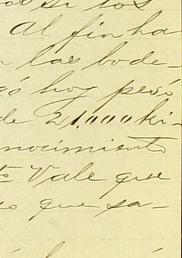 si los
Al fin ha
n las bode-
gó hoy pesó
de 21.000 ki-
nocimiento
Vale que
que sa-